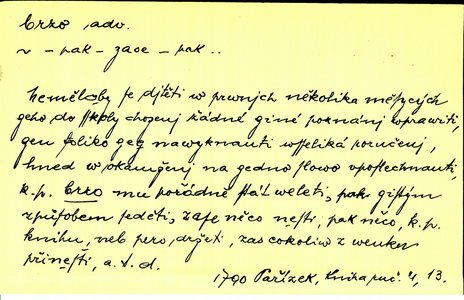 brzo, adv.
~ – pak – zase – pak ..
Neměloby se djtěti w prwnjch několika měsycých
geho do sskoly chozenj žádné giné poznánj wprawiti,
gen toliko geg nawyknauti wsseliká poručenj,
hned w okamženj na gedno slowo vposlechnauti,
k. p. brzo mu pořádně stát weleti, pak gistým
způsobem seděti, zase něco nesti, pak něco, k. p.
knihu, neb pero, držeti, zas cokoliw z wenku
přinesti, a. t. d.
1790 Pařízek, Kniha ruč. 4, 13.